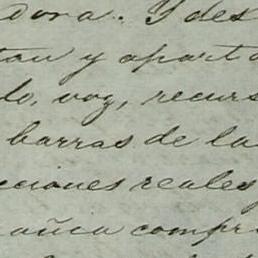 dora. Y des
tan y aparta
do, voz, recurs
barras de la
cciones reales
aña compr